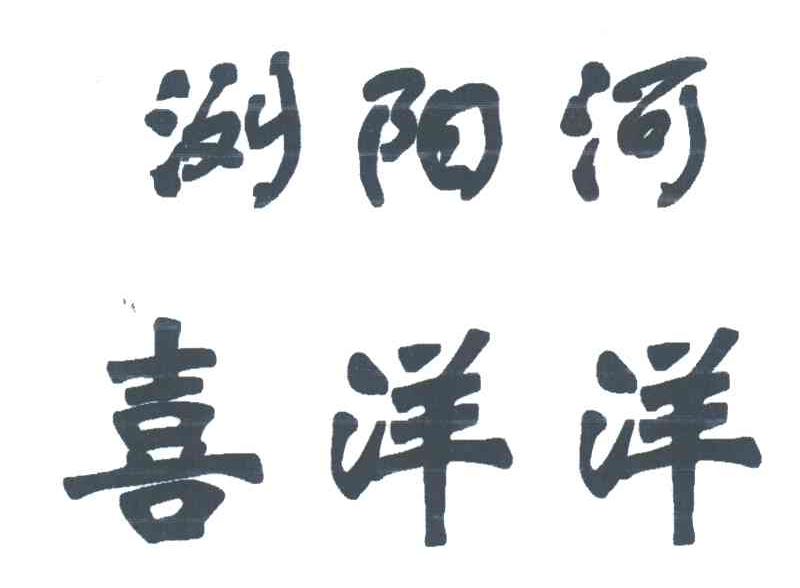 浏阳河
喜洋洋